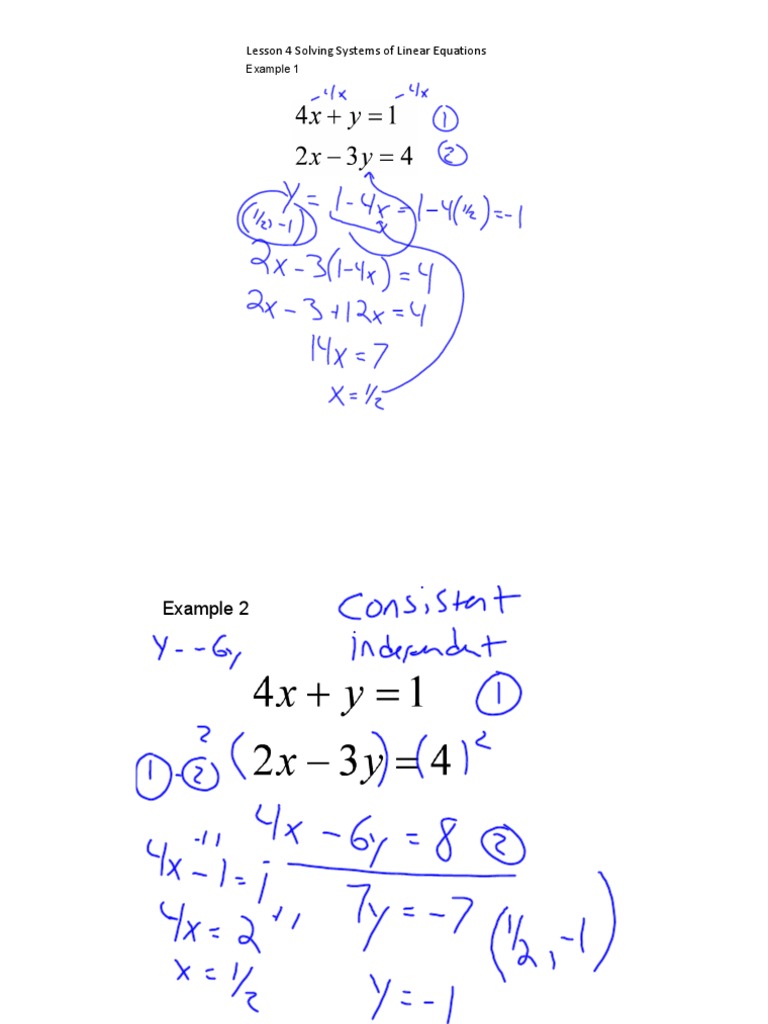 Lesson 4 Solving Systems of Linear Equations
Example 1
-4x -4x
4x + y = 1 ①
2x − 3y = 4 ②
y = 1-4x = 1-4(1/2) = -1
(1/2, -1)
2x - 3(1-4x) = 4
2x - 3 + 12x = 4
14x = 7
x = 1/2
Example 2
Consistent
y - -6y
independent
4x + y = 1 ①
2 (2x − 3y) = (4) 2
① - ②
4x - 6y = 8 ②
4x - 1 = 1
+1
7y = -7
4x = 2
(1/2, -1)
x = 1/2
y = -1